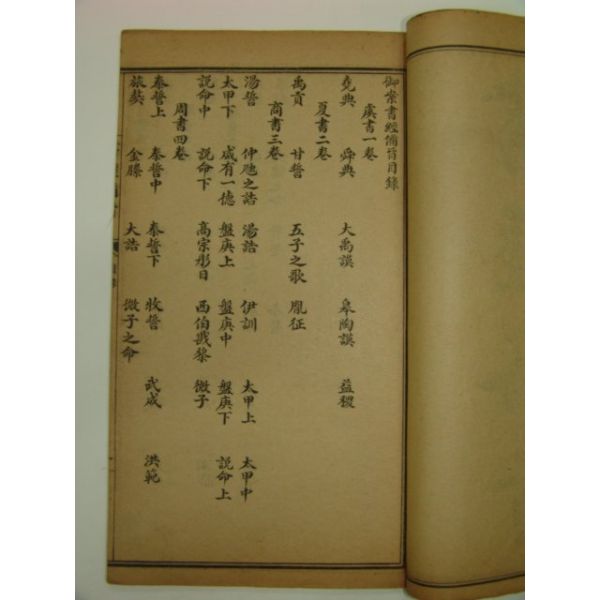 御案書經備旨目錄
虞書一卷
堯典 舜典 大禹謨 皋陶謨 益稷
夏書二卷
禹貢 甘誓 五子之歌 胤征
商書三卷
湯誓 仲虺之誥 湯誥 伊訓 太甲上 太甲中
太甲下 咸有一德 盤庚上 盤庚中 盤庚下 説命上
説命中 説命下 高宗肜日 西伯戡黎 微子
周書四卷
泰誓上 泰誓中 泰誓下 牧誓 武成 洪範
旅獒 金縢 大誥 微子之命